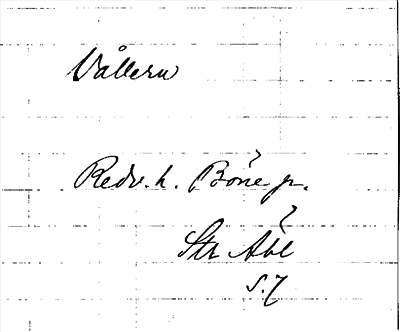 Vållern
Redv. h. Böne p.
Str Abl
S. 7